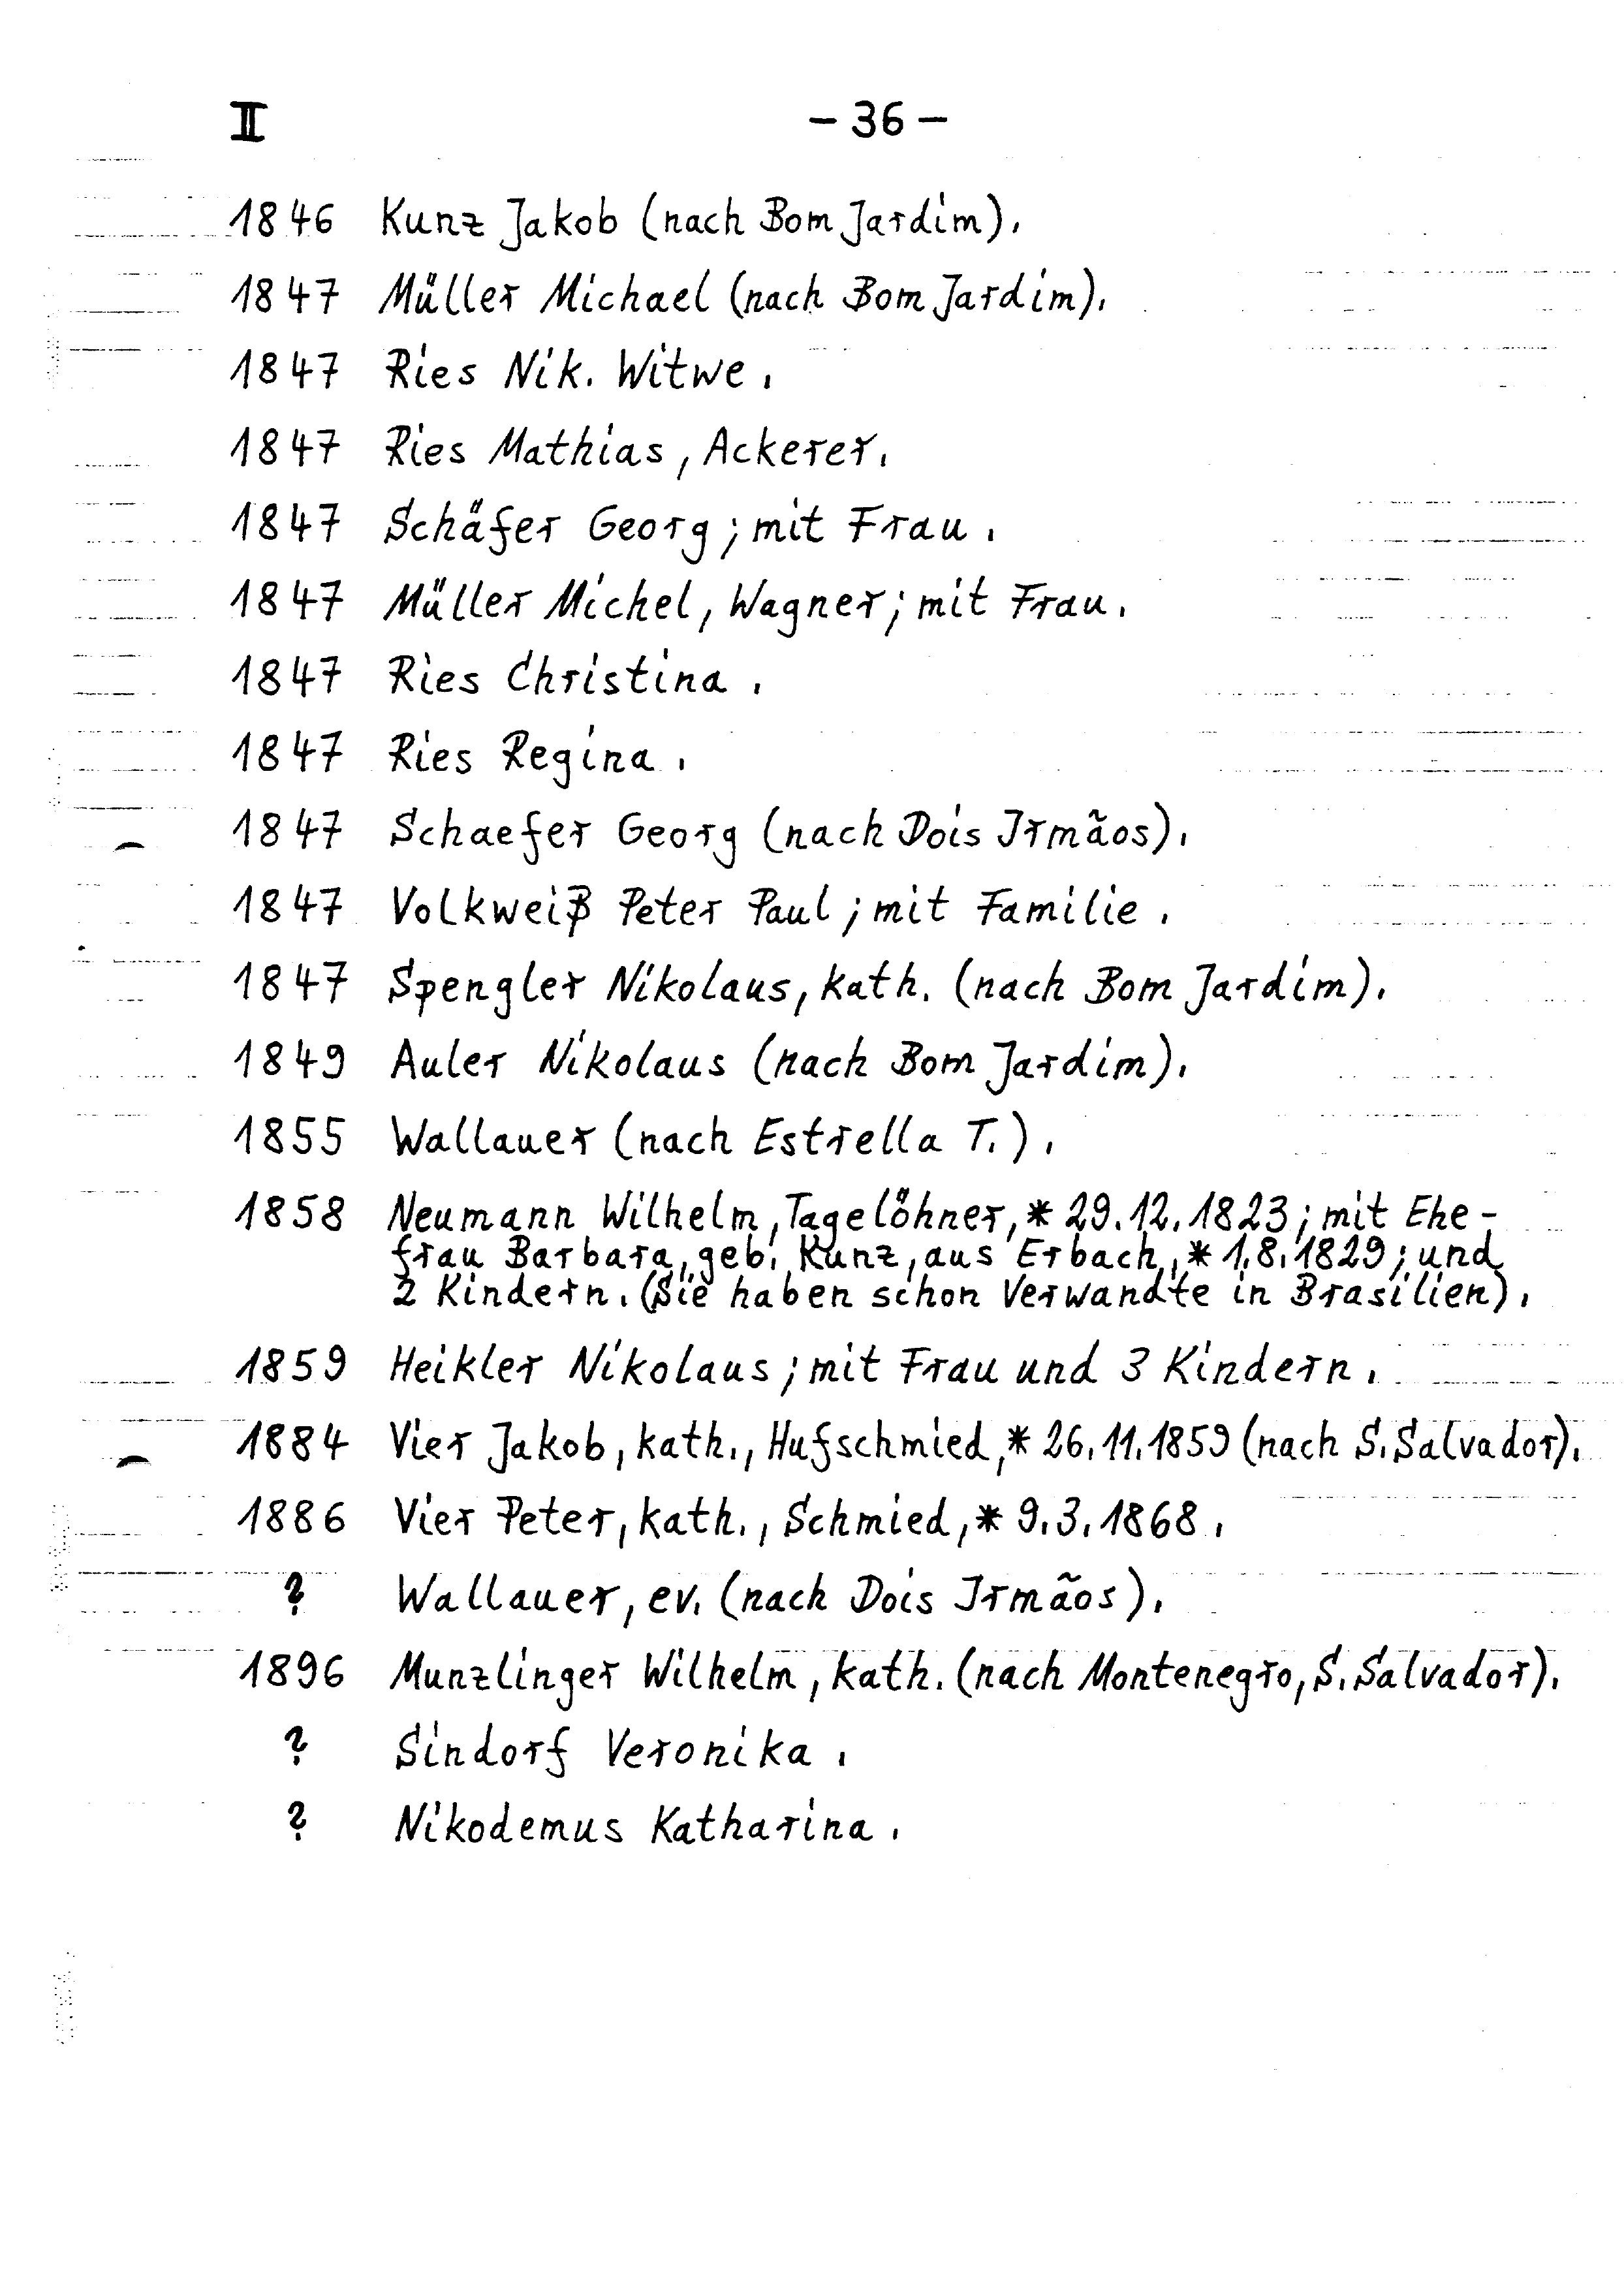 II - 36 -
1846 Kunz Jakob (nach Bom Jardim).
1847 Müller Michael (nach Bom Jardim).
1847 Ries Nik. Witwe.
1847 Ries Mathias, Ackerer.
1847 Schäfer Georg; mit Frau.
1847 Müller Michel, Wagner; mit Frau.
1847 Ries Christina.
1847 Ries Regina.
1847 Schaefer Georg (nach Dois Irmãos).
1847 Volkweiß Peter Paul; mit Familie.
1847 Spengler Nikolaus, kath. (nach Bom Jardim).
1849 Auler Nikolaus (nach Bom Jardim).
1855 Wallauer (nach Estrella T.).
1858 Neumann Wilhelm, Tagelöhner, * 29.12.1823; mit Ehe-
frau Barbara, geb. Kunz, aus Erbach, * 1.8.1829; und
2 Kindern. (Sie haben schon Verwandte in Brasilien).
1859 Heikler Nikolaus; mit Frau und 3 Kindern.
1884 Vier Jakob, kath., Hufschmied, * 26.11.1859 (nach S. Salvador).
1886 Vier Peter, kath., Schmied, * 9.3.1868.
? Wallauer, ev. (nach Dois Irmãos).
1896 Munzlinger Wilhelm, kath. (nach Montenegro, S. Salvador).
? Sindorf Veronika.
? Nikodemus Katharina.